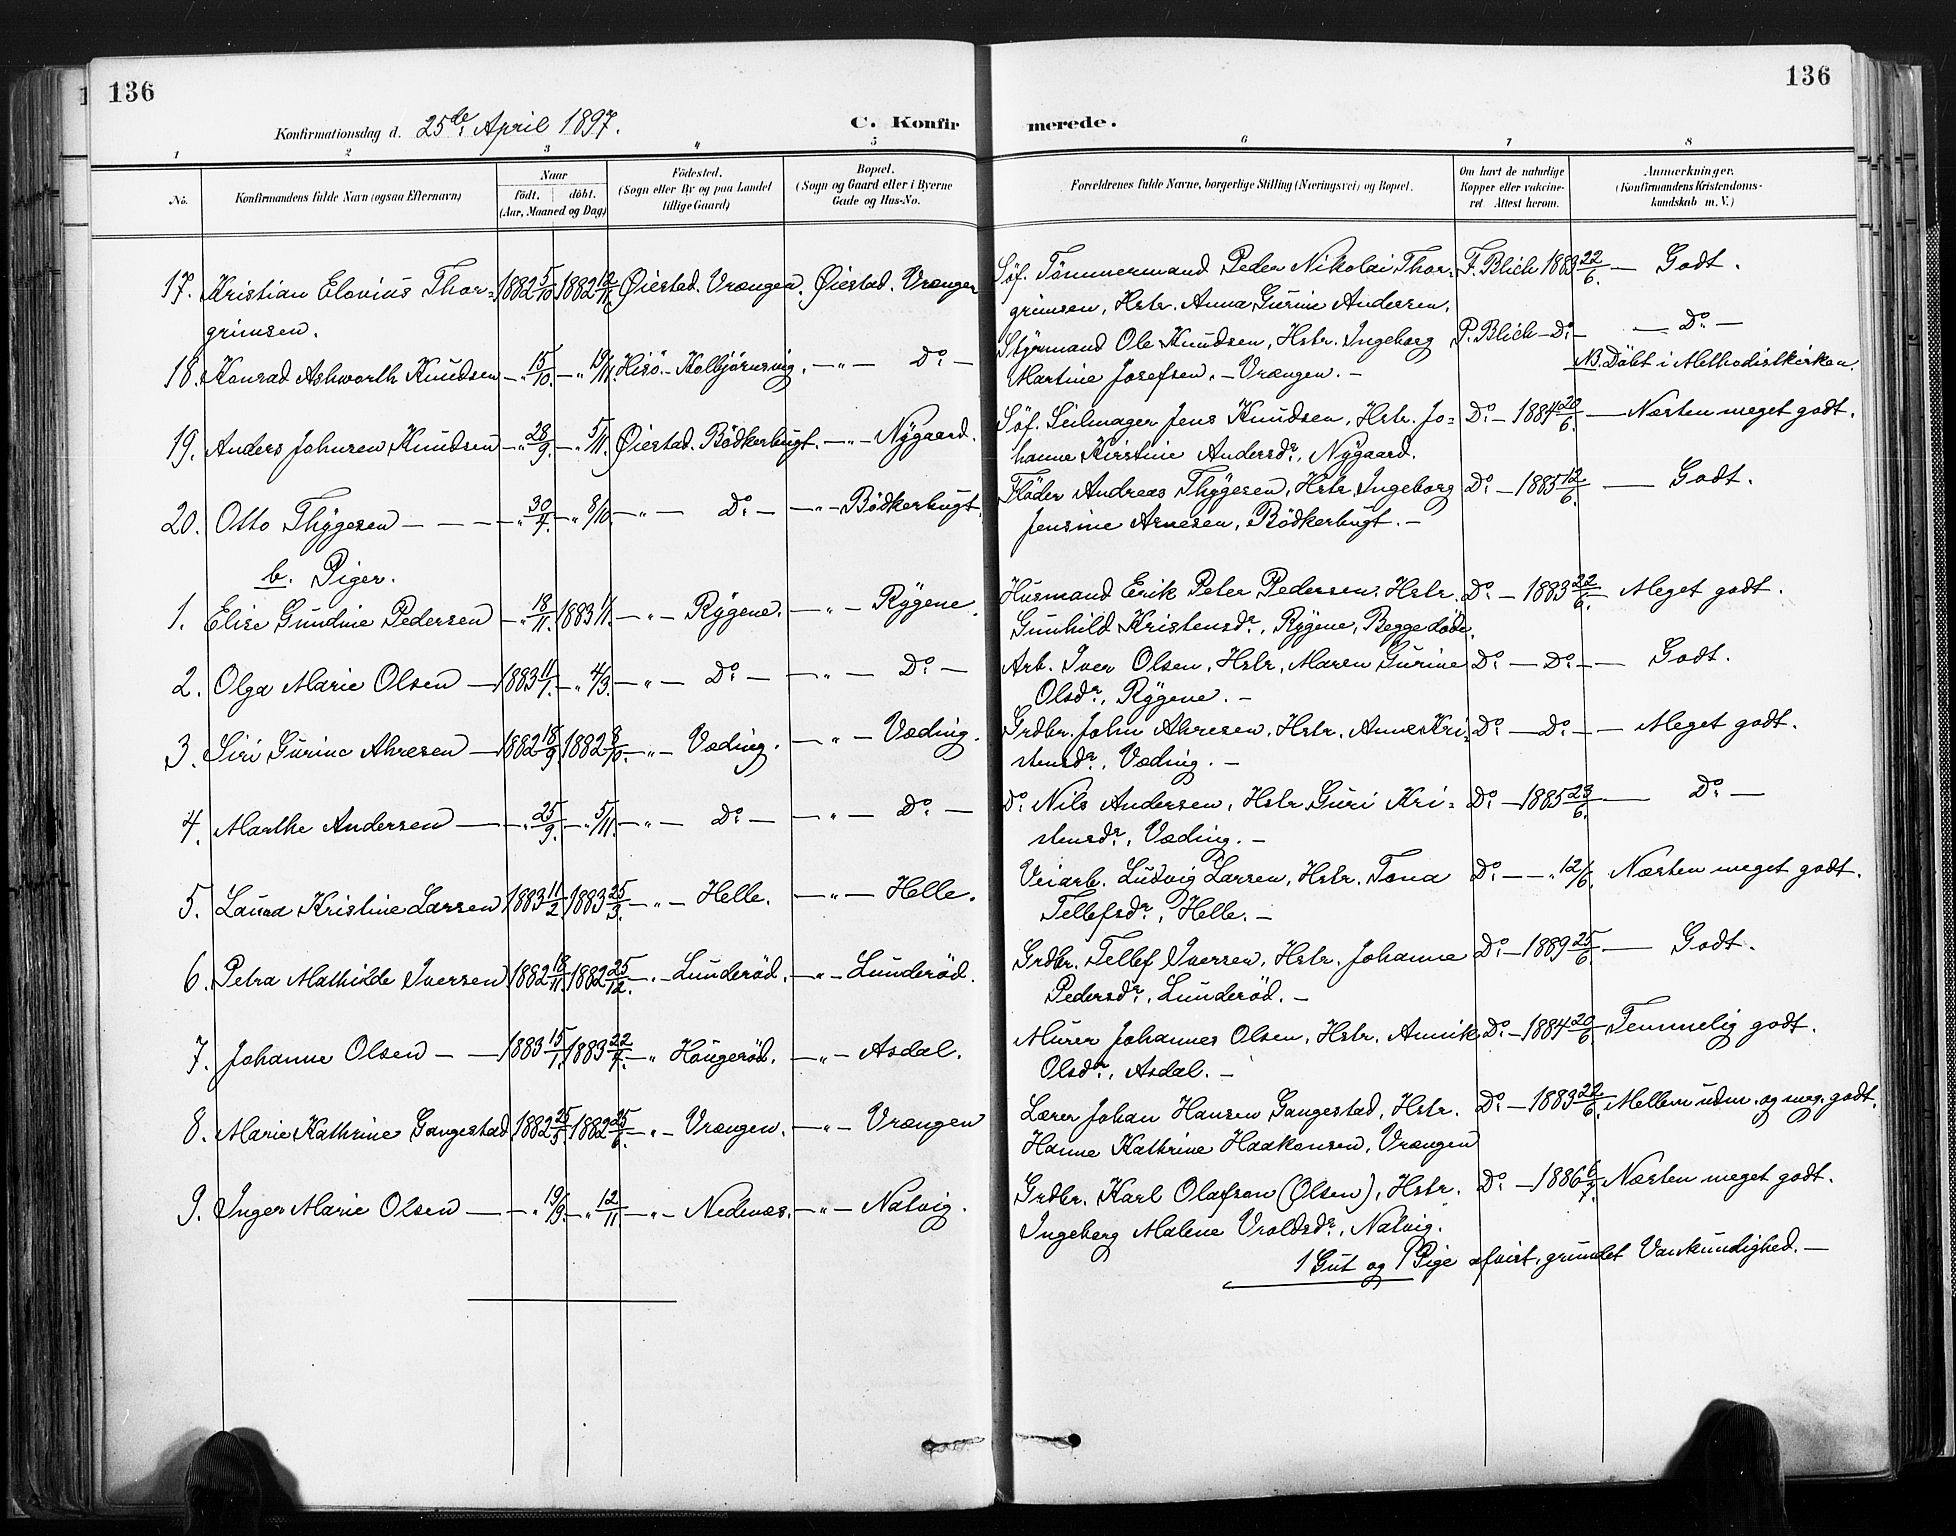 136
136
Konfirmationsdag d. 25de April 1897.
C. Konfirmerede.
1 2 3 4 5 6 7 8
No.
Konfirmandens fulde Navn (ogsaa Efternavn)
Naar
födt. döbt.
(Aar, Maaned og Dag)
Födested.
(Sogn eller By og paa Landet
tillige Gaard)
Bopæl.
(Sogn og Gaard eller i Byerne
Gade og Hus-No.
Forældrenes fulde Navne, borgerlige Stilling (Næringsvei) og Bopæl.
Om havt de naturlige
Kopper eller vaccine-
ret. Attest herom.
Anmærkninger.
(Konfirmandens Kristendoms-
kundskab m. V.)
17. Kristian Elovius Thor- 1882 5/10 1882 12/11 Øiestad. Vrængen. Øiestad. Vrængen Söf. Tömmermand Peder Nikolai Thor- F. Blich 1883 22/6. — Godt.
grimsen. grimsen, Hstr. Anna Gurine Andersen.
18. Konrad Ashworth Knudsen — „ 15/10. — „ 19/11. Hisö - Kolbjörnsvig. — „ — Do. — Styrmand Ole Knudsen, Hstr. Ingeborg P. Blich — Do. — — Do. —
Martine Josefsen. - Vrængen. — NB. Döbt i Methodistkirken.
19. Anders Johnsen Knudsen — „ 28/9. — „ 5/11. Øiestad. Bödkerbugt. — „ — Nygaard. Söf. Seilmager Jens Knudsen, Hstr. Jo- Do. — 1884 20/6. — Næsten meget godt.
hanne Kirstine Andersdr., Nygaard.
20. Otto Thygesen — — — „ 30/7. — „ 8/10. — „ — Do. — — „ — Bödkerbugt. Flöder Andreas Thygesen, Hstr. Ingeborg Do. — 1885 12/6. — Godt.
Jensine Arnesen, Bödkerbugt. —
b. Piger.
1. Elise Gundine Pedersen — „ 18/11. 1883 1/1. — „ — Rygene. — „ — Rygene. Husmand Erik Peter Pedersen. Hstr. Do. — 1883 22/6. — Meget godt.
Gunhild Kristensdr., Rygene, Begge döde.
2. Olga Marie Olsen — 1883 11/1. — „ 4/3. — „ — Do. — — „ — Do. — Arb. Iver Olsen, Hstr. Maren Gurine Do. — Do. — — Godt.
Olsdr., Rygene. —
3. Siri Gurine Ahresen — 1882 18/9. 1882 8/10. — „ — Væding. — „ — Væding. Grdbr. John Ahresen, Hstr. Anne Kri- Do. — Do. — — Meget godt.
stensdr., Væding. —
4. Marthe Andersen — „ 25/9. — „ 5/11. — „ — Do. — — „ — Do. — Do. Nils Andersen, Hstr. Guri Kri- Do. — 1885 23/6. — Do. —
stensdr., Væding. —
5. Laura Kristine Larsen 1883 11/2. 1883 25/3. — „ — Helle. — „ — Helle. Veiarb. Ludvig Larsen, Hstr. Tona Do. — — „ 12/6. Næsten meget godt.
Tellefsdr., Helle. —
6. Petra Mathilde Iversen 1882 18/11. 1882 25/12. — „ — Lunderöd. — „ — Lunderöd. Grdbr. Tellef Iversen, Hstr. Johanne Do. — 1889 25/6. — Godt.
Pedersdr., Lunderöd. —
7. Johanne Olsen — — 1883 15/1. 1883 22/7. — „ Hougeröd. — „ — Asdal. Murer Johannes Olsen, Hstr. Annik Do. — 1884 20/6 Temmelig godt.
Olsdr., Asdal. —
8. Marie Kathrine Gangestad 1882 25/5 1882 25/6. — „ — Vrængen. — „ — Vrængen Lærer Johan Hansen Gangestad, Hstr. Do. — 1883 22/6. Mellem udm. og meg. godt.
Hanne Kathrine Haakonsen, Vrængen
9. Inger Marie Olsen — — „ 19/9. — „ 12/11 — „ — Nedenæs. — „ — Natvig. Grdbr. Karl Olafsen (Olsen), Hstr. Do. — 1886 6/7. Næsten meget godt.
Ingeborg Malene Vroldsdr., Natvig.
1 Gut og 1 Pige afvist, grundet Vankundighed. —